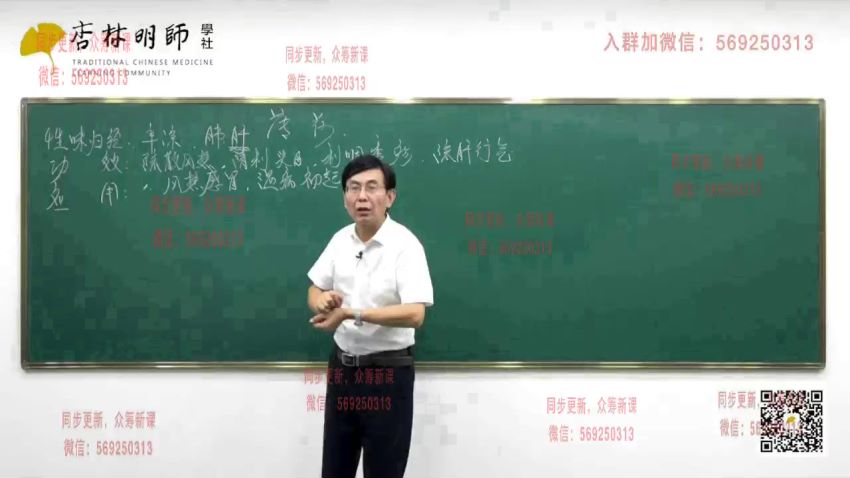 杏林明師 學社
TRADITIONAL CHINESE MEDICINE
LEARNING COMMUNITY
同步更新，众筹新课
微信：569250313
同步更新，众筹新课
微信：569250313
入群加微信：569250313
薄荷
性味归经：辛凉．肺肝
功效：疏散风热，清利头目，利咽透疹．疏肝行气
应用：1．风热感冒，温病初起
同步更新，众筹新课
微信：569250313
同步更新，众筹新课
微信：569250313
同步更新，众筹新课
微信：569250313
同步更新，众筹新课
微信：569250313
同步更新，众筹新课
微信：569250313
同步更新，众筹新课
微信：569250313
同步更新，
微信：